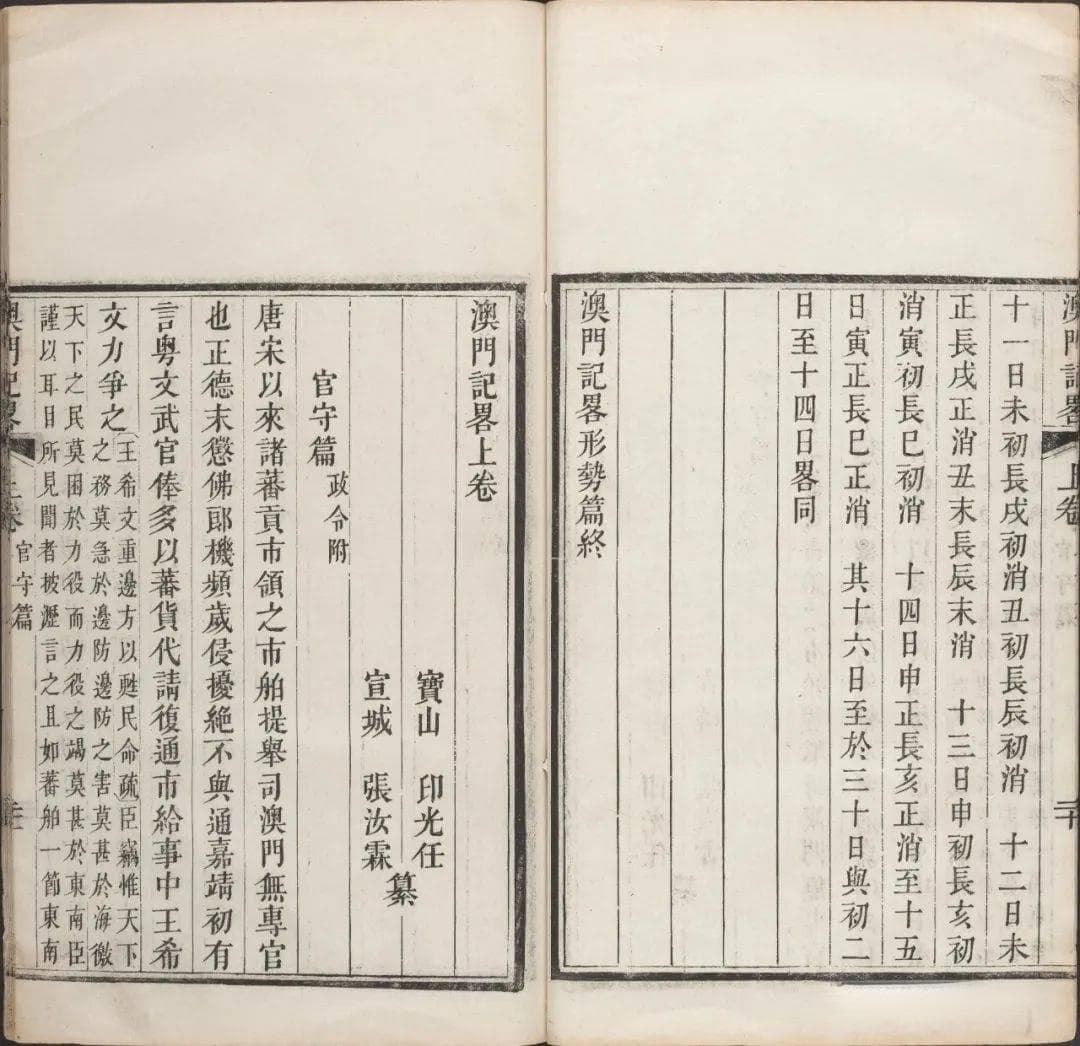 澳門記畧 上卷
十一日未初長戌初消丑初長辰初消 十二日未
正長戌正消丑末長辰末消 十三日申初長亥初
消寅初長巳初消 十四日申正長亥正消至十五
日寅正長巳正消 其十六日至於三十日與初二
日至十四日畧同
澳門記畧形勢篇終
澳門記畧上卷
寶山 印光任
宣城 張汝霖
纂
官守篇 政令附
唐宋以來諸蕃貢市領之市舶提舉司澳門無專官
也正德末懲佛郎機頻歲侵擾絕不與通嘉靖初有
言粵文武官俸多以蕃貨代請復通市給事中王希
文力爭之
王希文重邊方以甦民命疏臣竊惟天下
之務莫急於邊防邊防之害莫甚於海徼
天下之民莫困於力役而力役之竭莫甚於東南臣
謹以耳目所見聞者披瀝言之且如蕃舶一節東南
澳門記畧 上卷 官守篇